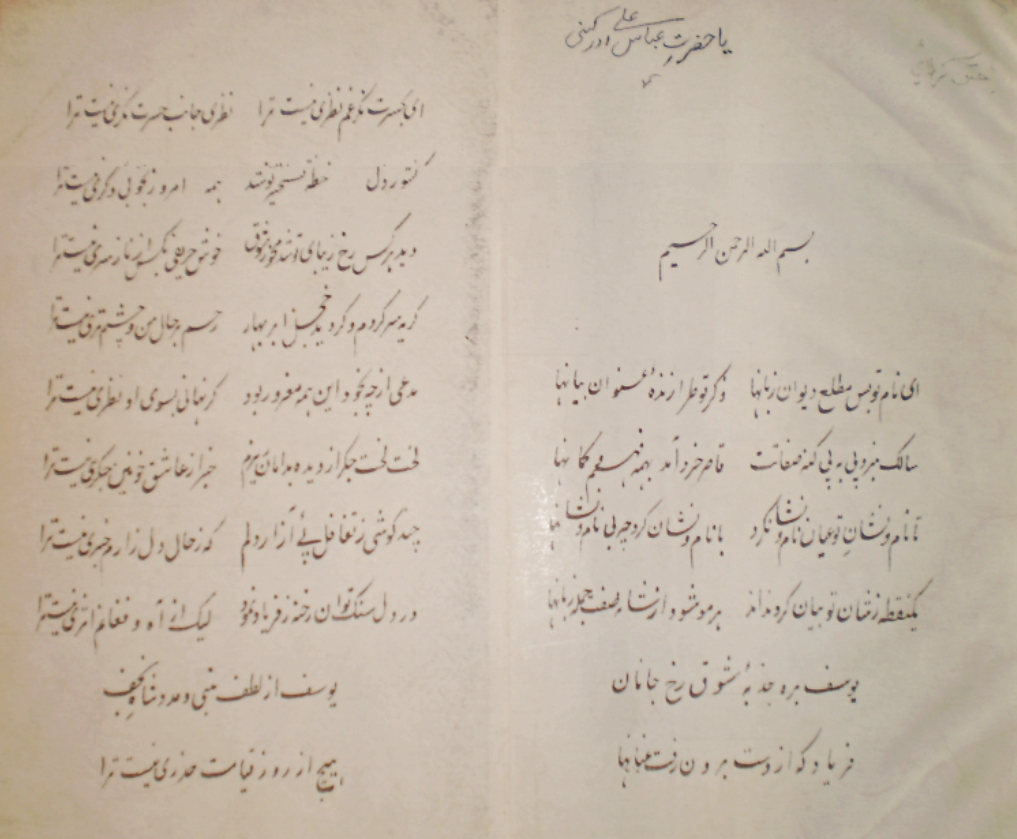 یا حضرت عباس علی ادرکنی
بسم الله الرحمن الرحیم
ای نام تو بس مطلع دیوان زبانها ذکر تو طرازندهٔ عنوان بیانها
سالک نبرد پی به پی کنه صفاتت قاصر خرد آمد همه فهم و گمانها
تا نام و نشان تو عیان نام و نشان کرد با نام و نشان کرد چه بی نام و نشانها
یکنقطه زشان تو بیان کرد نداند بر مو شود ار وصف جمله زبانها
یوسف بره جذبهٔ شوق رخ جانان
فریاد که از دست برون رفت عنانها
ای بحسرت نگرغم نظری نیست ترا نظری جانب حسرت نگری نیست ترا
کشور دل خطهٔ تسخیر تو شد همه امروز بخوبی دگری نیست ترا
دید هر کس رخ زیبای تو شد خوش حریفی بکس از ناز سری نیست ترا
گریه سر کردم و گردید خجل ابر بهار رحم بر حال من و چشم تری نیست ترا
مدعی از چه بخود این همه مغرور بود گر نهانی بسوی او نظری نیست ترا
لخت لخت جگر از دیده بدامان ریزم خبر از عاشق خونین جگری نیست ترا
چند کوشی ز تغافل پی آزار دلم که ز حال دل زارم خبری نیست ترا
در دل سنگ توان رخنه ز فریاد نمود لیک از آه و فغانم اثری نیست ترا
یوسف از لطف نبی و مدد شاه نجف
هیچ از روز قیامت حذری نیست ترا